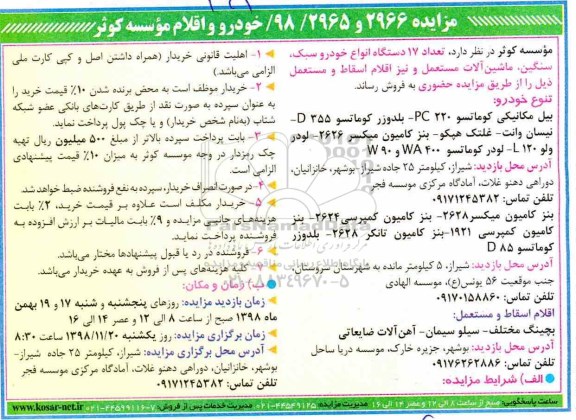 مزایده ۲۹۶۶ و ۲۹۶۵/ ۹۸/ خودرو و اقلام مؤسسه کوثر
مؤسسه کوثر در نظر دارد، تعداد ۱۷ دستگاه انواع خودرو سبک،
سنگین، ماشین‌آلات مستعمل و نیز اقلام اسقاط و مستعمل
ذیل را از طریق مزایده حضوری به فروش رساند.
تنوع خودرو:
بیل مکانیکی کوماتسو PC- ۲۲۰- بلدوزر کوماتسو D- ۳۵۵
نیسان وانت- غلتک هپکو- بنز کامیون میکسر ۲۶۲۶- لودر
ولو L- ۱۲۰- لودر کوماتسو WA ۴۰۰ و W ۹۰
آدرس محل بازدید: شیراز، کیلومتر ۲۵ جاده شیراز-بوشهر، خانازنیان،
دوراهی دهنو غلات، آمادگاه مرکزی موسسه فجر
تلفن تماس: ۰۹۱۷۱۲۴۵۳۸۲
بنز کامیون میکسر۲۶۲۸- بنز کامیون کمپرسی۲۶۲۴- بنز
کامیون کمپرسی ۱۹۲۱-بنز کامیون تانکر ۲۶۲۸- بلدوزر
کوماتسو D ۸۵
آدرس محل بازدید: شیراز، ۵ کیلومتر مانده به شهرستان سروستان،
جنب موقعیت ۵۶ یونس(ع)، موسسه الهادی
تلفن تماس: ۰۹۱۷۰۱۵۸۸۶۰
اقلام اسقاط و مستعمل:
بچینگ مختلف- سیلو سیمان- آهن‌آلات ضایعاتی
آدرس محل بازدید: بوشهر، جزیره خارک، موسسه دریا ساحل
تلفن تماس: ۰۹۱۷۶۲۶۲۸۸۶
الف) شرایط مزایده:
۱- اهلیت قانونی خریدار (همراه داشتن اصل و کپی کارت ملی
الزامی می‌باشد.)
۲- خریدار موظف است به محض برنده شدن ۱۰٪ قیمت خرید را
به عنوان سپرده به صورت نقد از طریق کارت‌های بانکی عضو شبکه
شتاب (به‌نام شخص خریدار) و یا چک پول پرداخت نماید.
۳- بابت پرداخت سپرده بالاتر از مبلغ ۵۰۰ میلیون ریال تهیه
چک رمزدار در وجه موسسه کوثر به میزان ۱۰٪ قیمت پیشنهادی
الزامی است.
۴- در صورت انصراف خریدار، سپرده به نفع فروشنده ضبط خواهد شد.
۵- خریدار مکلف است علاوه بر قیمت خرید، ۲٪ بابت
هزینه‌های جانبی مزایده و ۹٪ بابت مالیات بر ارزش افزوده به
فروشنده پرداخت نماید.
۶- فروشنده در رد یا قبول پیشنهادها مختار می‌باشد.
۷- کلیه هزینه‌های پس از فروش به عهده خریدار می‌باشد.
ب) زمان و مکان:
زمان بازدید مزایده: روزهای پنجشنبه و شنبه ۱۷ و ۱۹ بهمن
ماه ۱۳۹۸ صبح از ساعت ۸ الی ۱۲ و عصر ۱۴ الی ۱۶
زمان برگزاری مزایده: روز یکشنبه ۱۳۹۸/۱۱/۲۰ ساعت ۸:۳۰
آدرس محل برگزاری مزایده: شیراز، کیلومتر ۲۵ جاده شیراز-
بوشهر، خانازنیان، دوراهی دهنو غلات، آمادگاه مرکزی موسسه فجر
تلفن تماس: ۰۹۱۷۱۲۴۵۳۸۲
ساعت پاسخگویی: صبح از ساعت ۸ الی ۱۲ و عصر ۱۴ الی ۱۶ مدیریت مزایده ۴۴۵۴۹۱۲۵-۰۲۱ مدیریت خدمات پس از فروش: ۷-۴۴۵۹۹۱۱۶-۰۲۱ www.kosar-net.ir